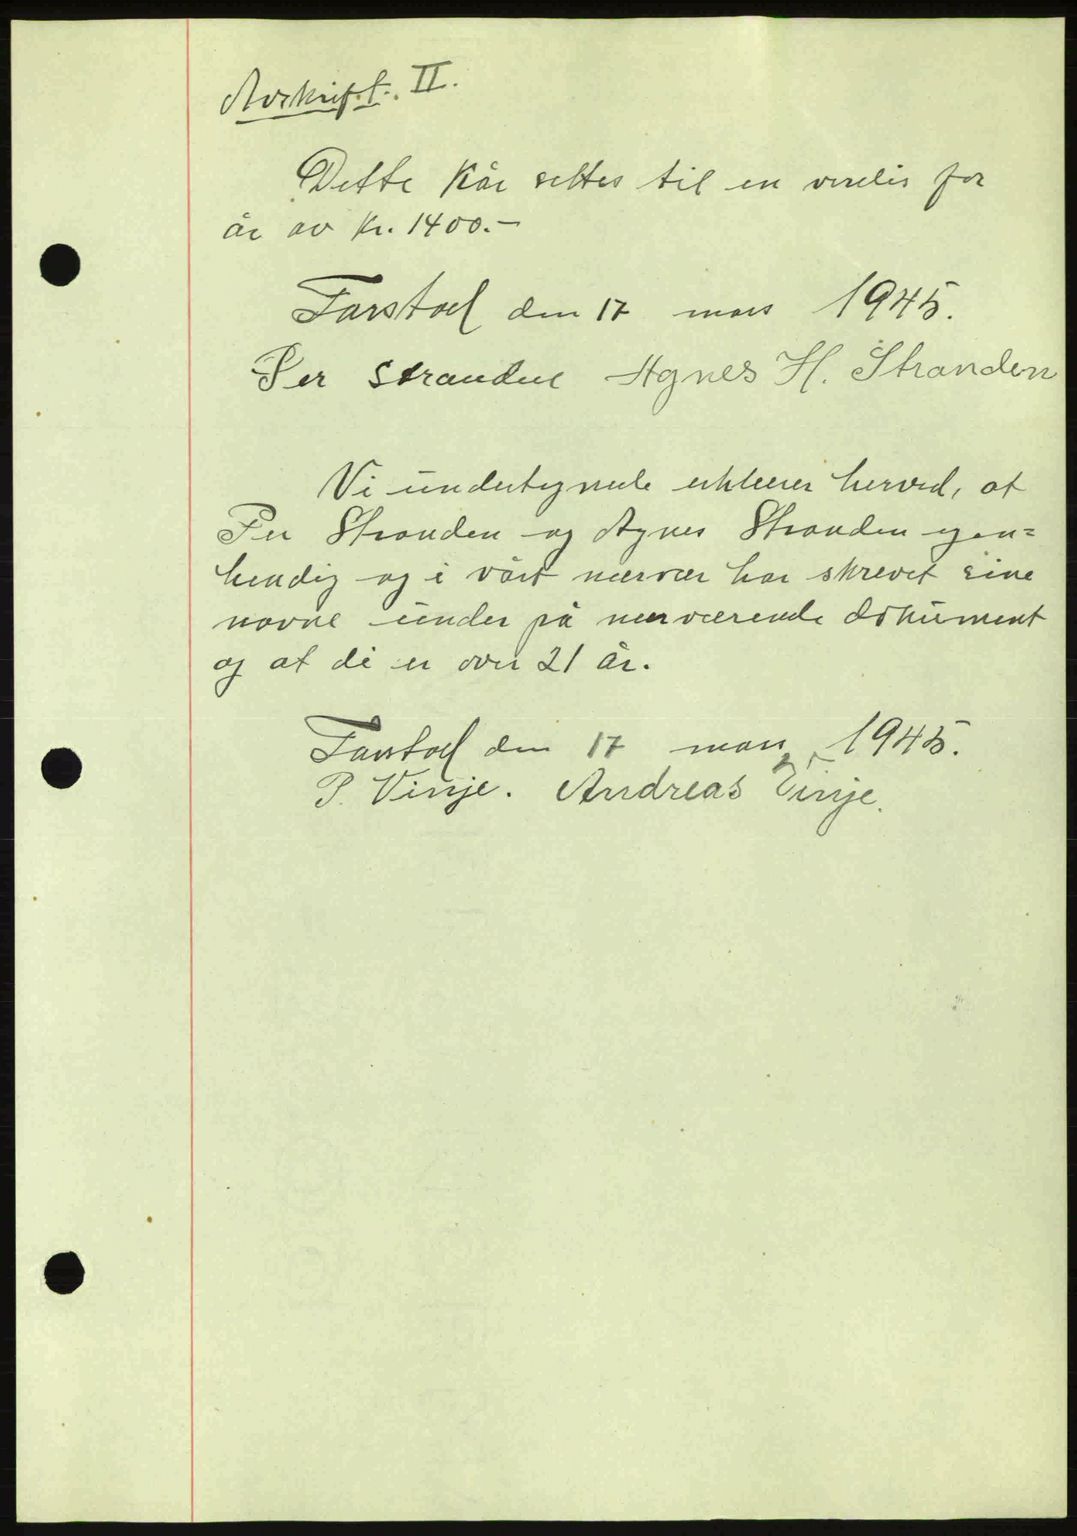 Avskrift. II.
Dette Kår settes til en verdis for
år av Kr. 1400.-
Farstad den 17 mars 1945.
Per Stranden Agnes H. Stranden
Vi undertegnede erklærer herved, at
Per Stranden og Agnes Stranden egen=
hendig og i vårt nærvær har skrevet sine
navne under på nærværende dokument
og at de er over 21 år.
Farstad den 17 mars 1945.
P. Vinje. Andreas Vinje.